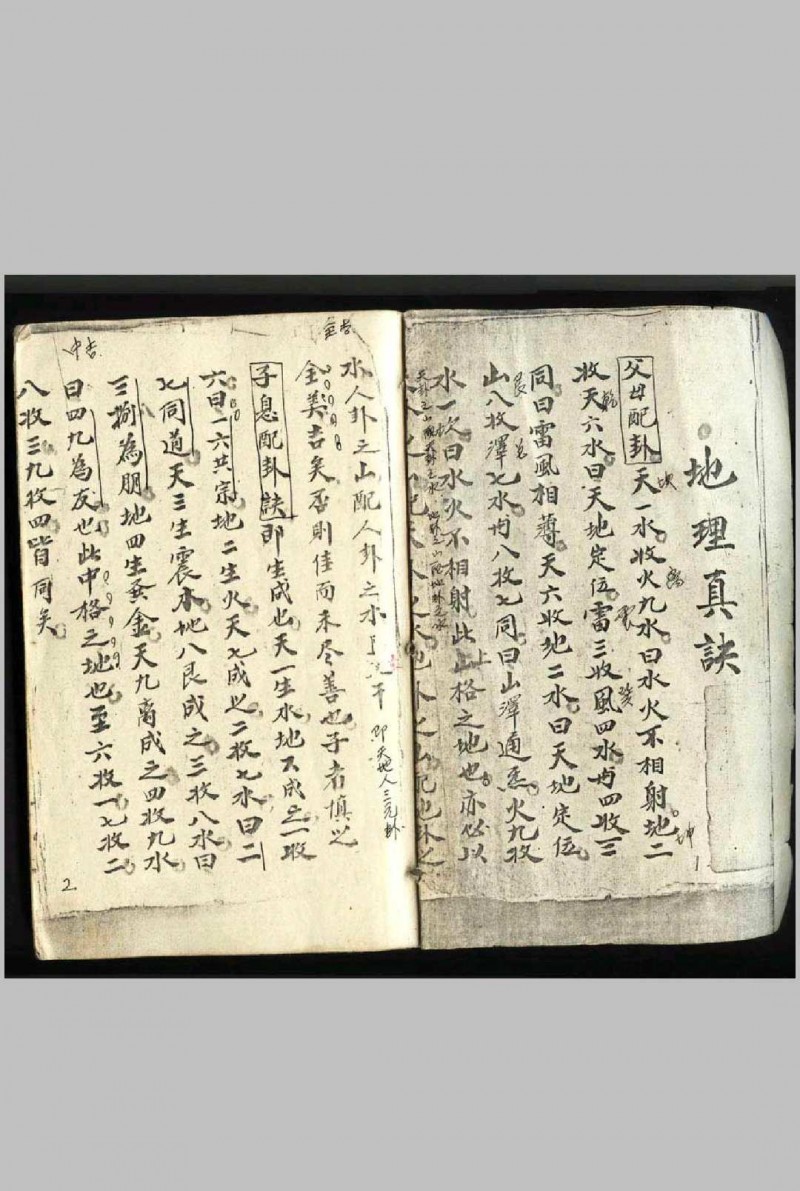 地理真訣
父母配卦 天一水收火九水曰水火不相射地二
收天六水曰天地定位雷三收風四水与四收三
同曰雷風相薄天六收地二水曰天地定位
山八收澤七水与八收七同曰山澤通炁火九收
水一次曰水火不相射此上格之地也亦必以
天卦之山配天卦之水地卦之山配地卦之
水人卦之山配人卦之水
即天地人三元卦
全美吉矣否則佳而未尽善也子者慎之
子息配卦訣 即生成也天一生水地六成之一收
六曰一六共宗地二生火天七成之二收七水曰二
七同道天三生震木地八艮成之三收八水曰
三捌為朋地四生金天九离成之四收九水
曰四九為友也此中格之地也至六收一七收二
八收三九收四皆同矣
中吉
1
2